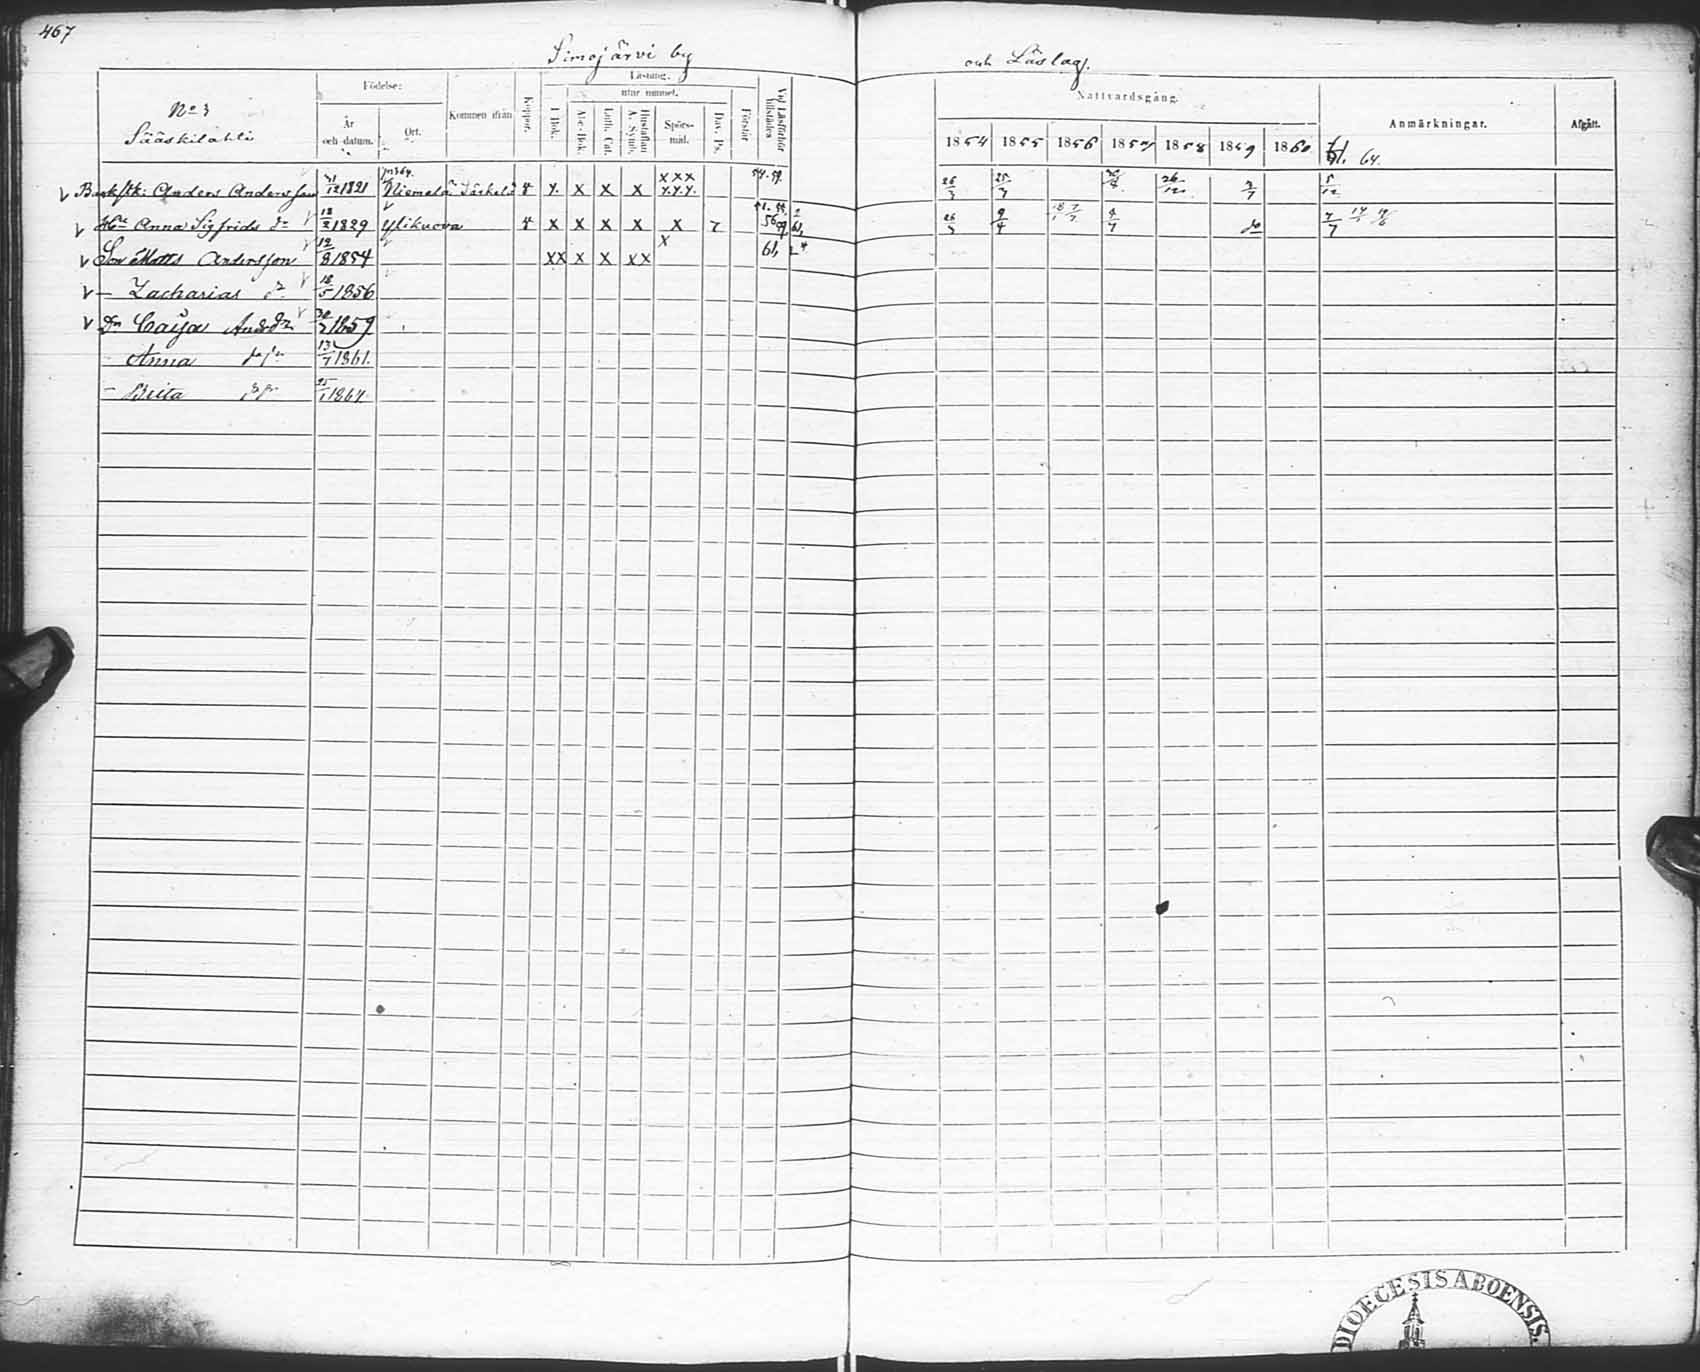 467
Simojärvi by
och Läslag.
No 3
Sääskilahti
Födelse:
År och datum.
Ort.
Kommen ifrån
Koppor.
Läsning.
utur minnet.
I Bok.
Abc-Bok.
Luth. Cat.
Hustaflan A. Symb.
Spörsmål.
Dav. Ps.
Förstår
Vid Läsförhör tillstädes
Nattvardsgång.
1854 1855 1856 1857 1858 1859 1860
61. 64.
Anmärkningar.
Afgått.
Anders Andersson 31/12 1821 Niemelä x x x x x x 54. 59. 26/3 25/3 26/12 3/7 5/12
Hu Anna Sigfrids dr 12/2 1829 Ylikuova x x x x x 7 26/3 9/4 4/7 7/7
Son Matts Andersson 12/8 1854 xx x x xx x 61,
— Zacharias 18/5 1856
Dr Caisa And. dr 30/3 1859
Anna 13/7 1861.
— Brita 25/1 1864.
DIOECESIS ABOENSIS.